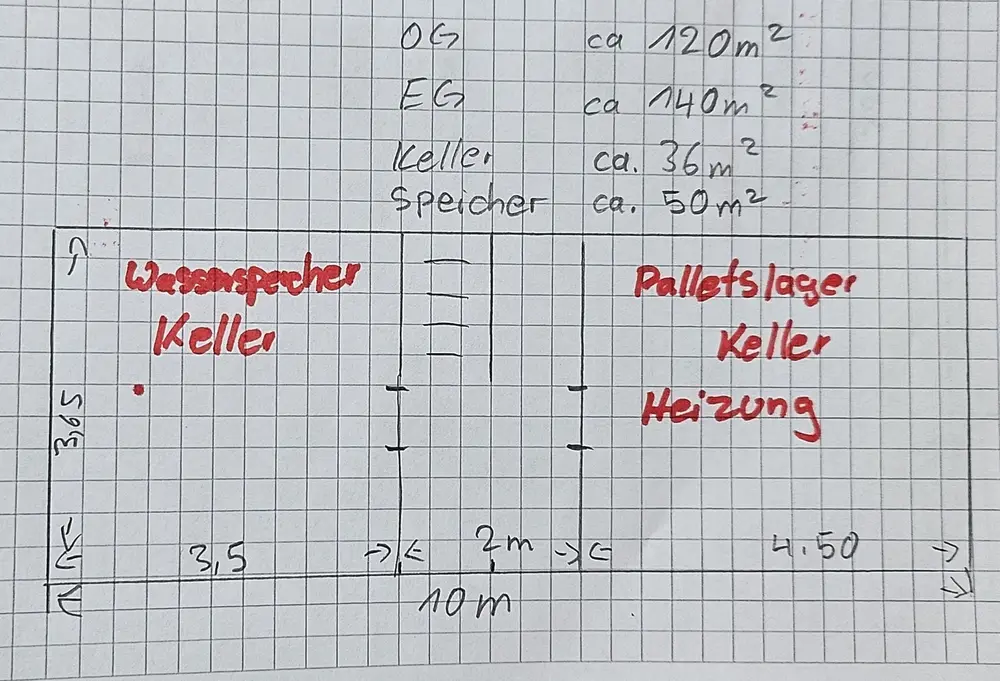 OG ca 120m²
EG ca 140m²
Keller ca. 36m²
Speicher ca. 50m²
Wasserspeicher
Keller
Palletslager
Keller
Heizung
3,65
3,5
2m
4.50
10m